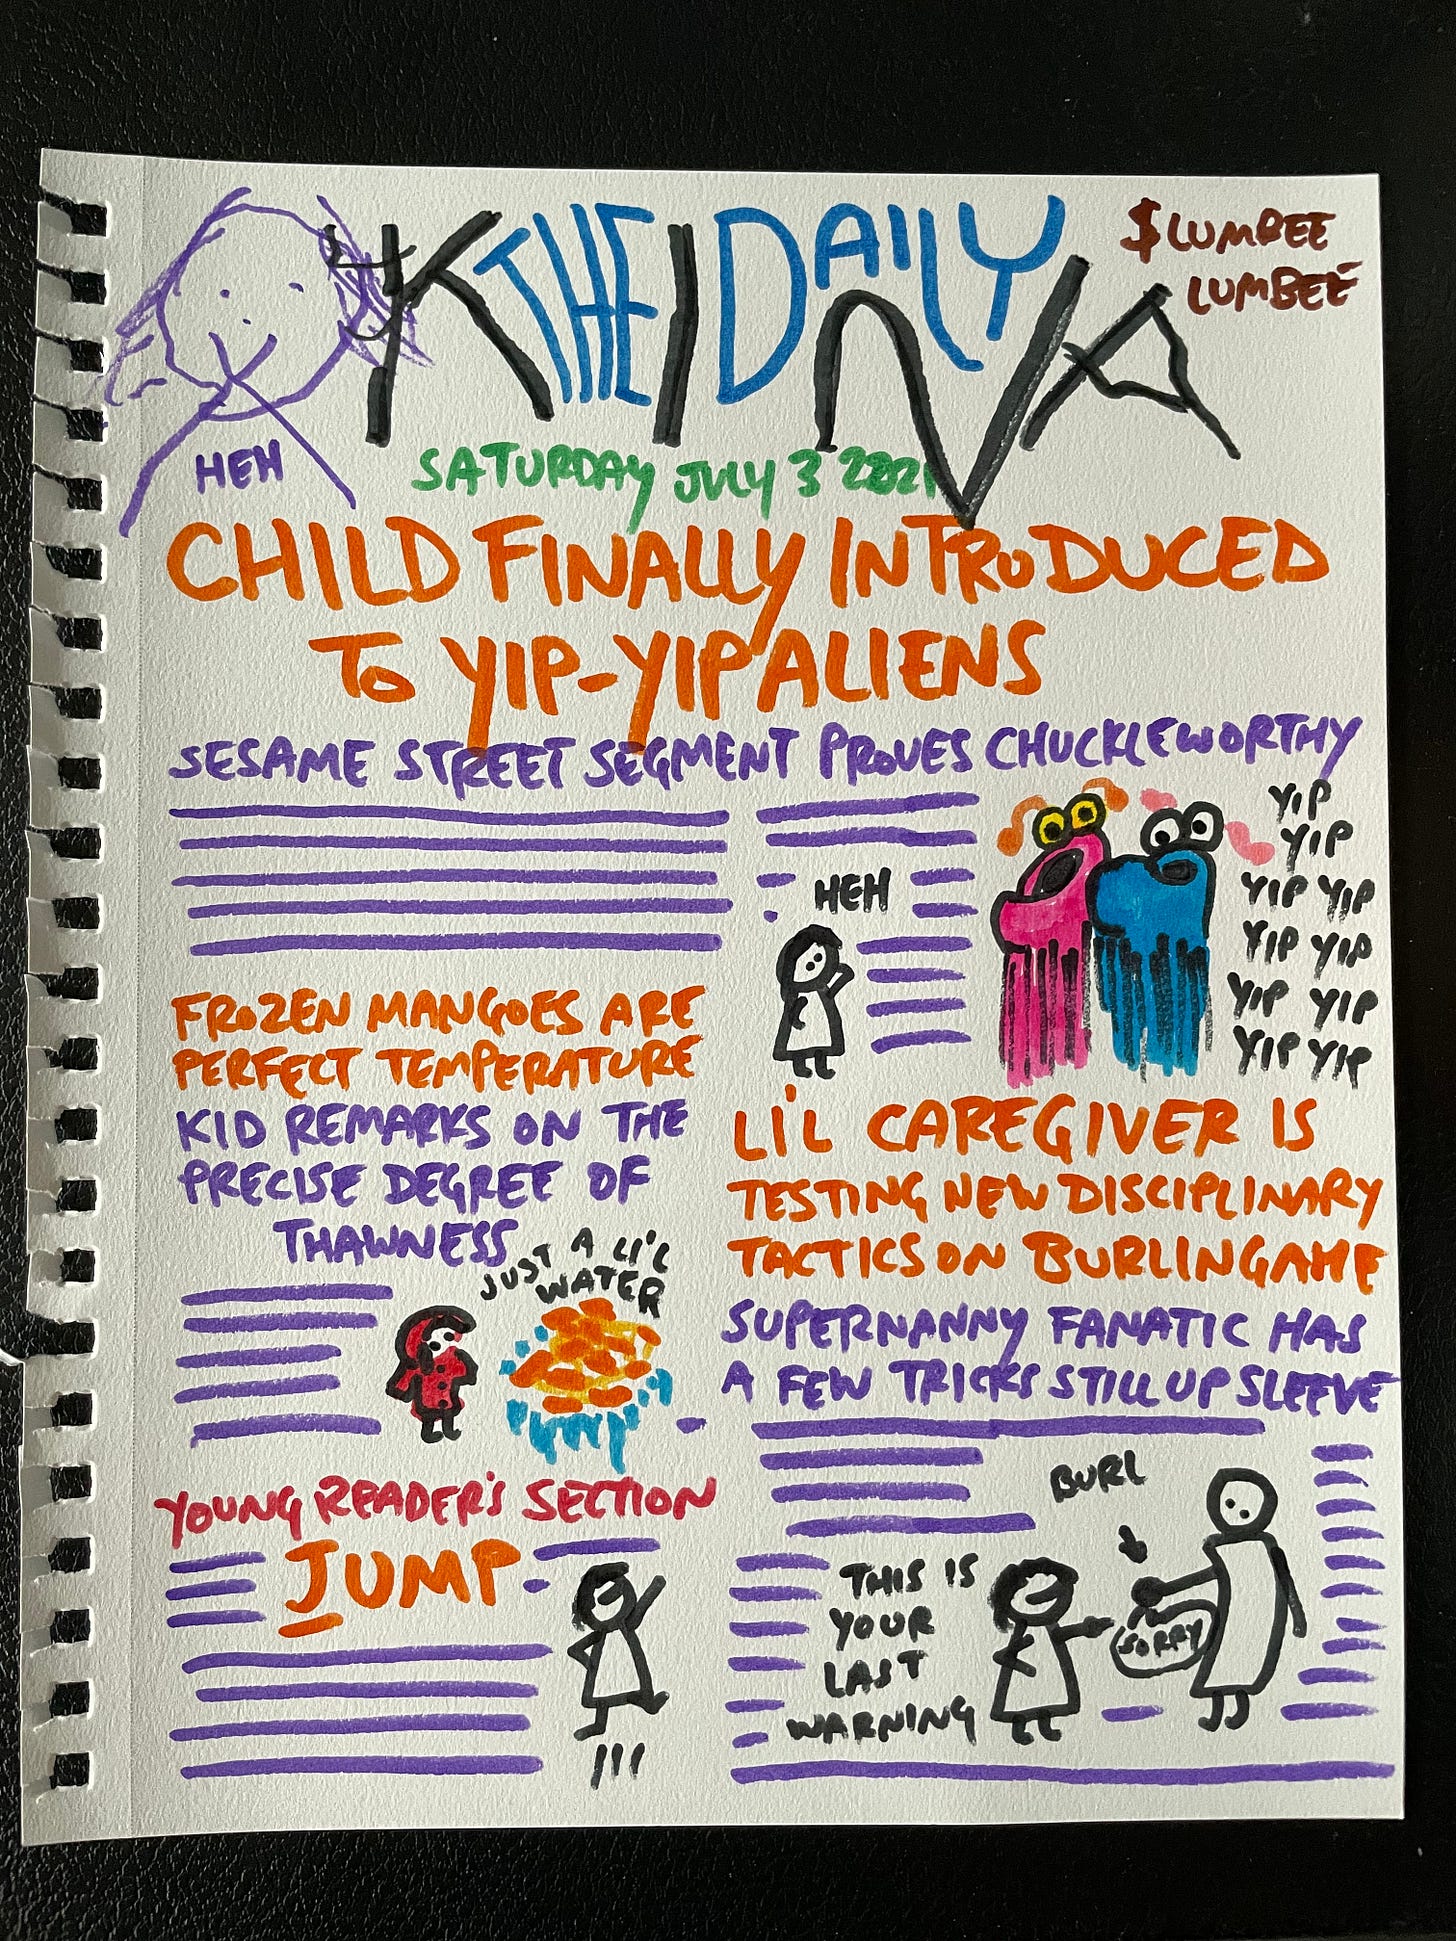 THE DAILY
KINA
$LUMBEE
LUMBEE
HEH
SATURDAY JULY 3 2021
CHILD FINALLY INTRODUCED
TO YIP-YIP ALIENS
SESAME STREET SEGMENT PROVES CHUCKLEWORTHY
HEH
YIP
YIP
YIP YIP
YIP YIP
YIP YIP
YIP YIP
FROZEN MANGOES ARE
PERFECT TEMPERATURE
KID REMARKS ON THE
PRECISE DEGREE OF
THAWNESS
JUST A LI'L
WATER
LI'L CAREGIVER IS
TESTING NEW DISCIPLINARY
TACTICS ON BURLINGAME
SUPERNANNY FANATIC HAS
A FEW TRICKS STILL UP SLEEVE
BURL
THIS IS
YOUR
LAST
WARNING
SORRY
YOUNG READER'S SECTION
JUMP